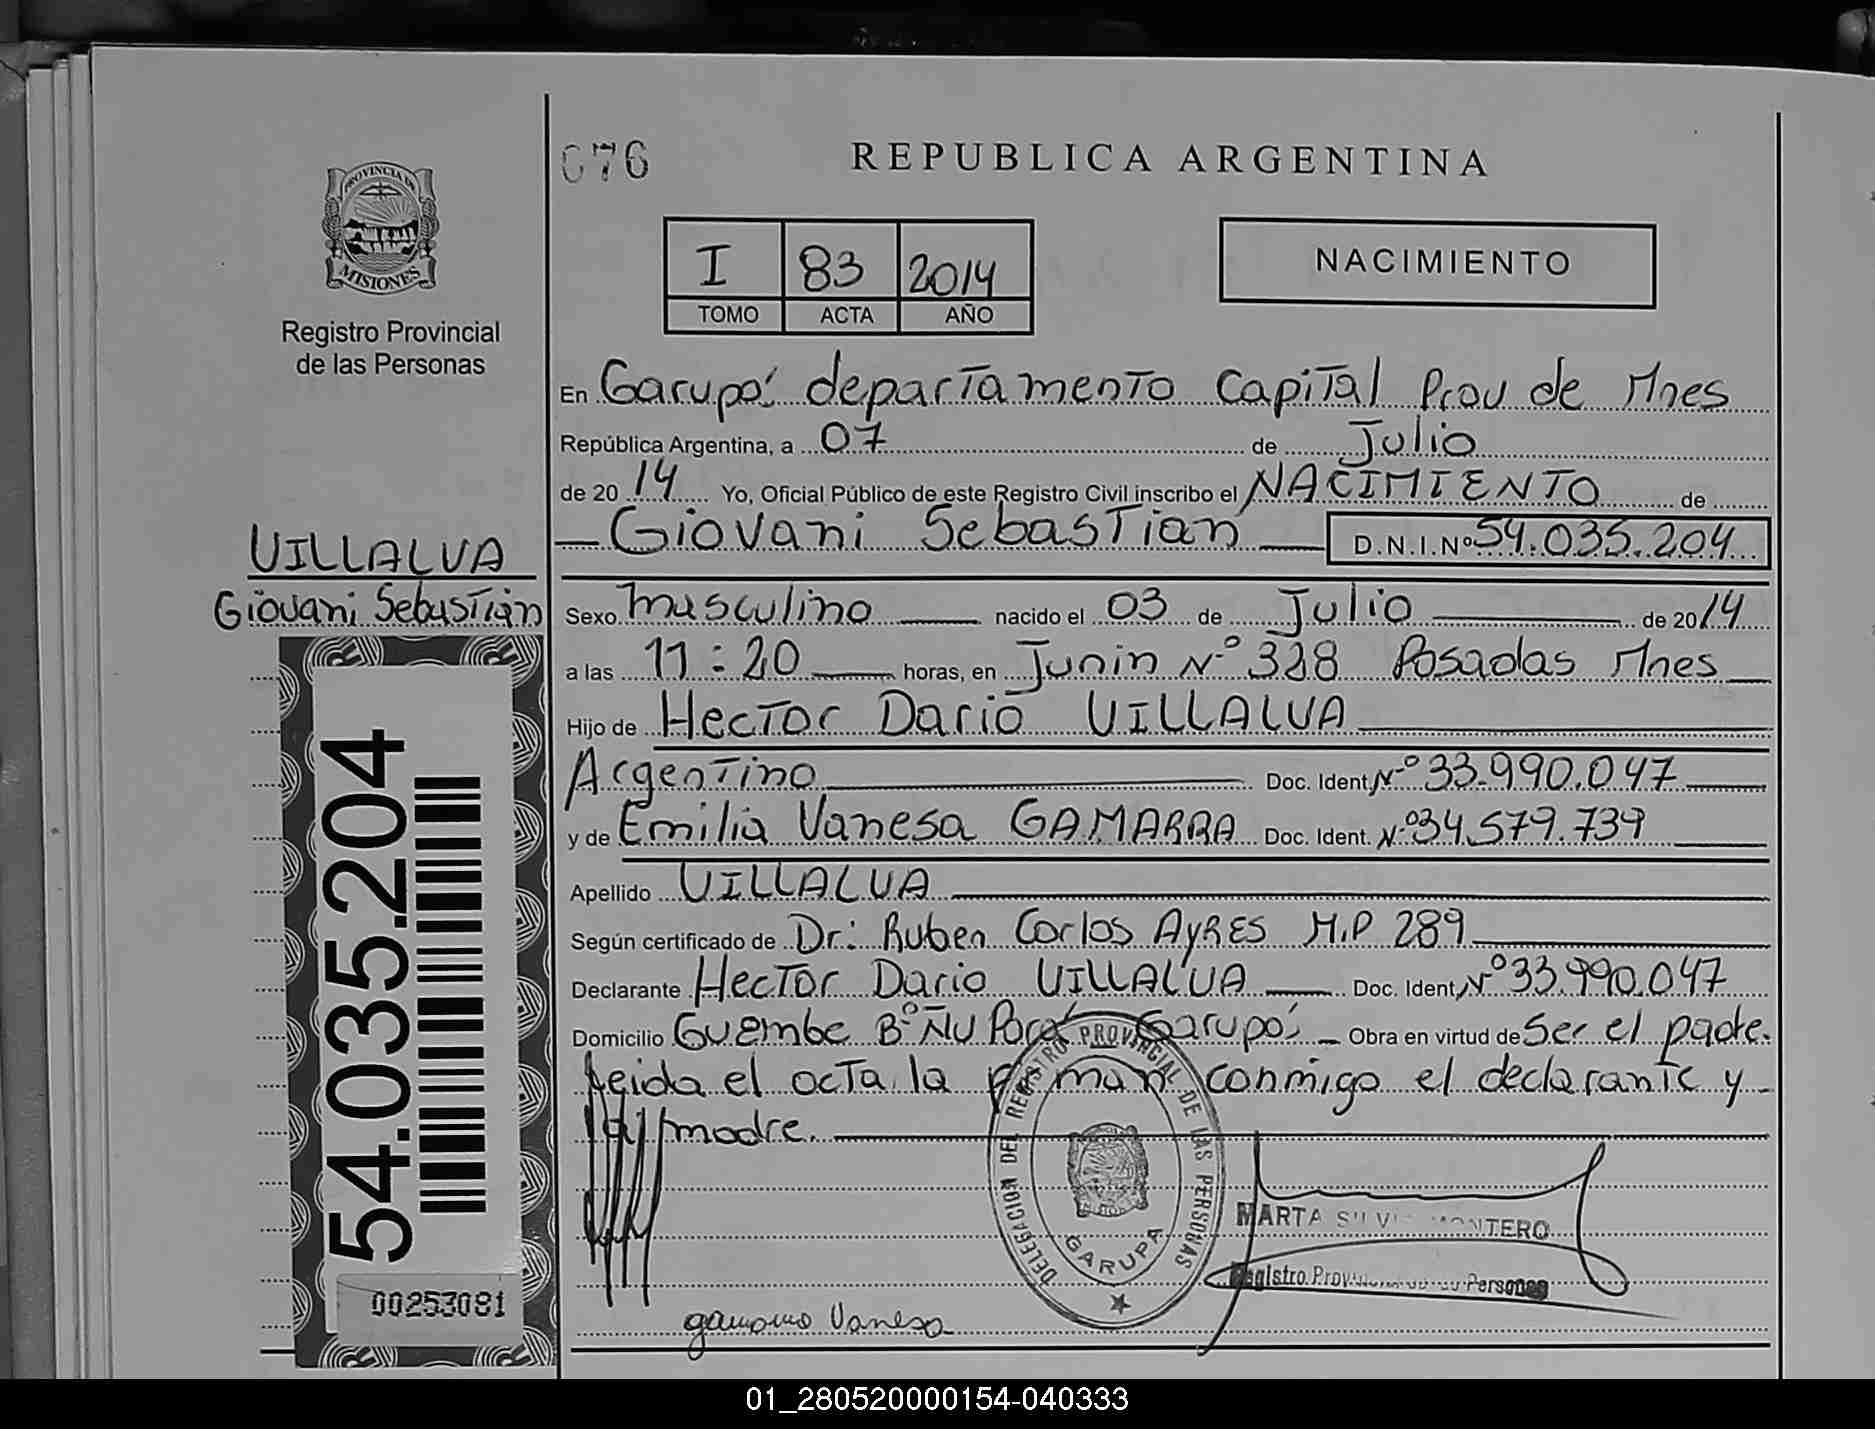 076
REPUBLICA ARGENTINA
PROVINCIA DE
MISIONES
Registro Provincial
de las Personas
I 83 2014
TOMO ACTA AÑO
NACIMIENTO
En Garupá departamento Capital Prov de Mnes
República Argentina, a 07 de Julio
de 2014 Yo, Oficial Público de este Registro Civil inscribo el NACIMIENTO de
Giovani Sebastian D.N.I.Nº 54.035.204
VILLALVA
Giovani Sebastian
Sexo masculino nacido el 03 de Julio de 2014
a las 11:20 horas, en Junin Nº 328 Posadas Mnes
Hijo de Hector Dario VILLALVA
Argentino Doc. Ident. Nº 33.990.047
y de Emilia Vanesa GAMARRA Doc. Ident. Nº 34.579.739
Apellido VILLALVA
Según certificado de Dr: Ruben Carlos AYRES M.P 289
Declarante Hector Dario VILLALVA Doc. Ident. Nº 33.990.047
Domicilio Guembe Bº Ñu Porá Garupá Obra en virtud de Ser el padre.
Leida el acta la firman conmigo el declarante y
la madre.
54.035.204
00253081
DELEGACION DEL REGISTRO PROVINCIAL DE LAS PERSONAS
GARUPA
MARTA SILVIA MONTERO
Registro Provincial de las Personas
Vanesa
01_280520000154-040333